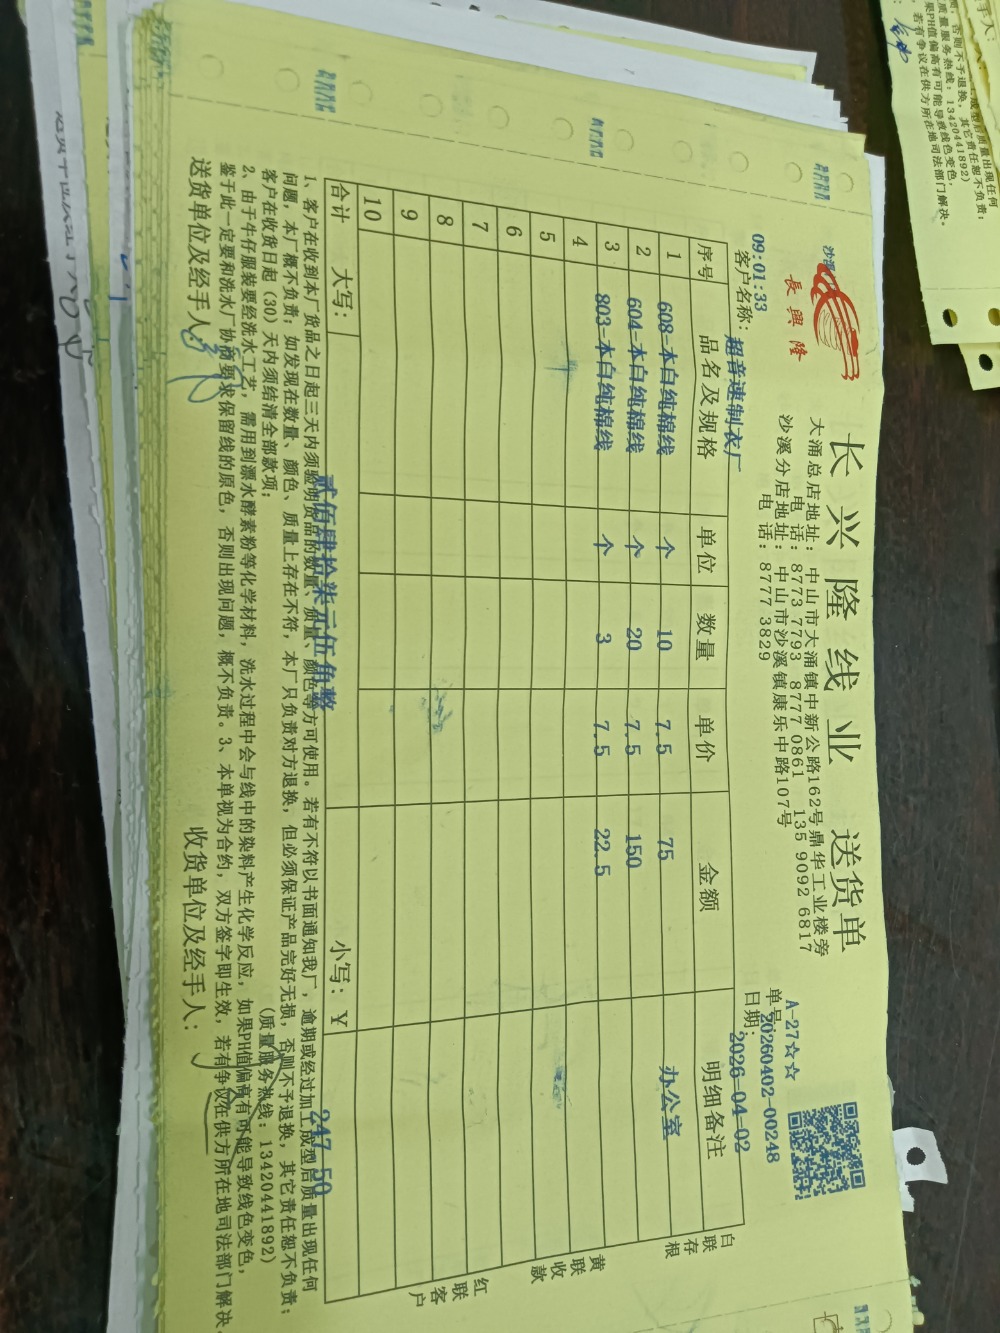 長興隆
长兴隆线业 送货单
大涌总店地址：中山市大涌镇中新公路162号鼎华工业楼旁
电 话：8773 7793 8777 0861 135 9092 6817
沙溪分店地址：中山市沙溪镇康乐中路107号
电 话：8777 3829
A-27☆☆
单号：20260402-00248
日期：2026-04-02
09:01:33
客户名称：超音速制衣厂
序号 品名及规格 单位 数量 单价 金额 明细备注
1 608-本白纯棉线 个 10 7.5 75 办公室
2 604-本白纯棉线 个 20 7.5 150
3 803-本白纯棉线 个 3 7.5 22.5
4
5
6
7
8
9
10
合计 大写： 贰佰肆拾柒元伍角整 小写：￥ 247.50
白联存根
黄联收款
红联客户
1、客户在收到本厂货品之日起三天内须验明货品的数量、质量、颜色等方可使用。若有不符以书面通知我厂，逾期或经过加工成型后质量出现任何
问题，本厂概不负责；如发现在数量、颜色、质量上存在不符，本厂只负责对方退换，但必须保证产品完好无损，否则不予退换，其它责任恕不负责；
客户在收货日起（30）天内须结清全部款项；
（质量服务热线：13420441892）
2、由于牛仔服装要经洗水工艺，需用到漂水酵素粉等化学材料，洗水过程中会与线中的染料产生化学反应，如果PH值偏高有可能导致线色变色，
鉴于此一定要和洗水厂协商要求保留线的原色，否则出现问题，概不负责。3、本单视为合约，双方签字即生效，若有争议在供方所在地司法部门解决。
送货单位及经手人：
收货单位及经手人：